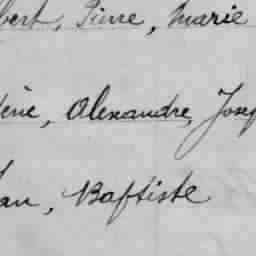 bert, Pierre, Marie
ène, Alexandre, Josep
ean, Baptiste